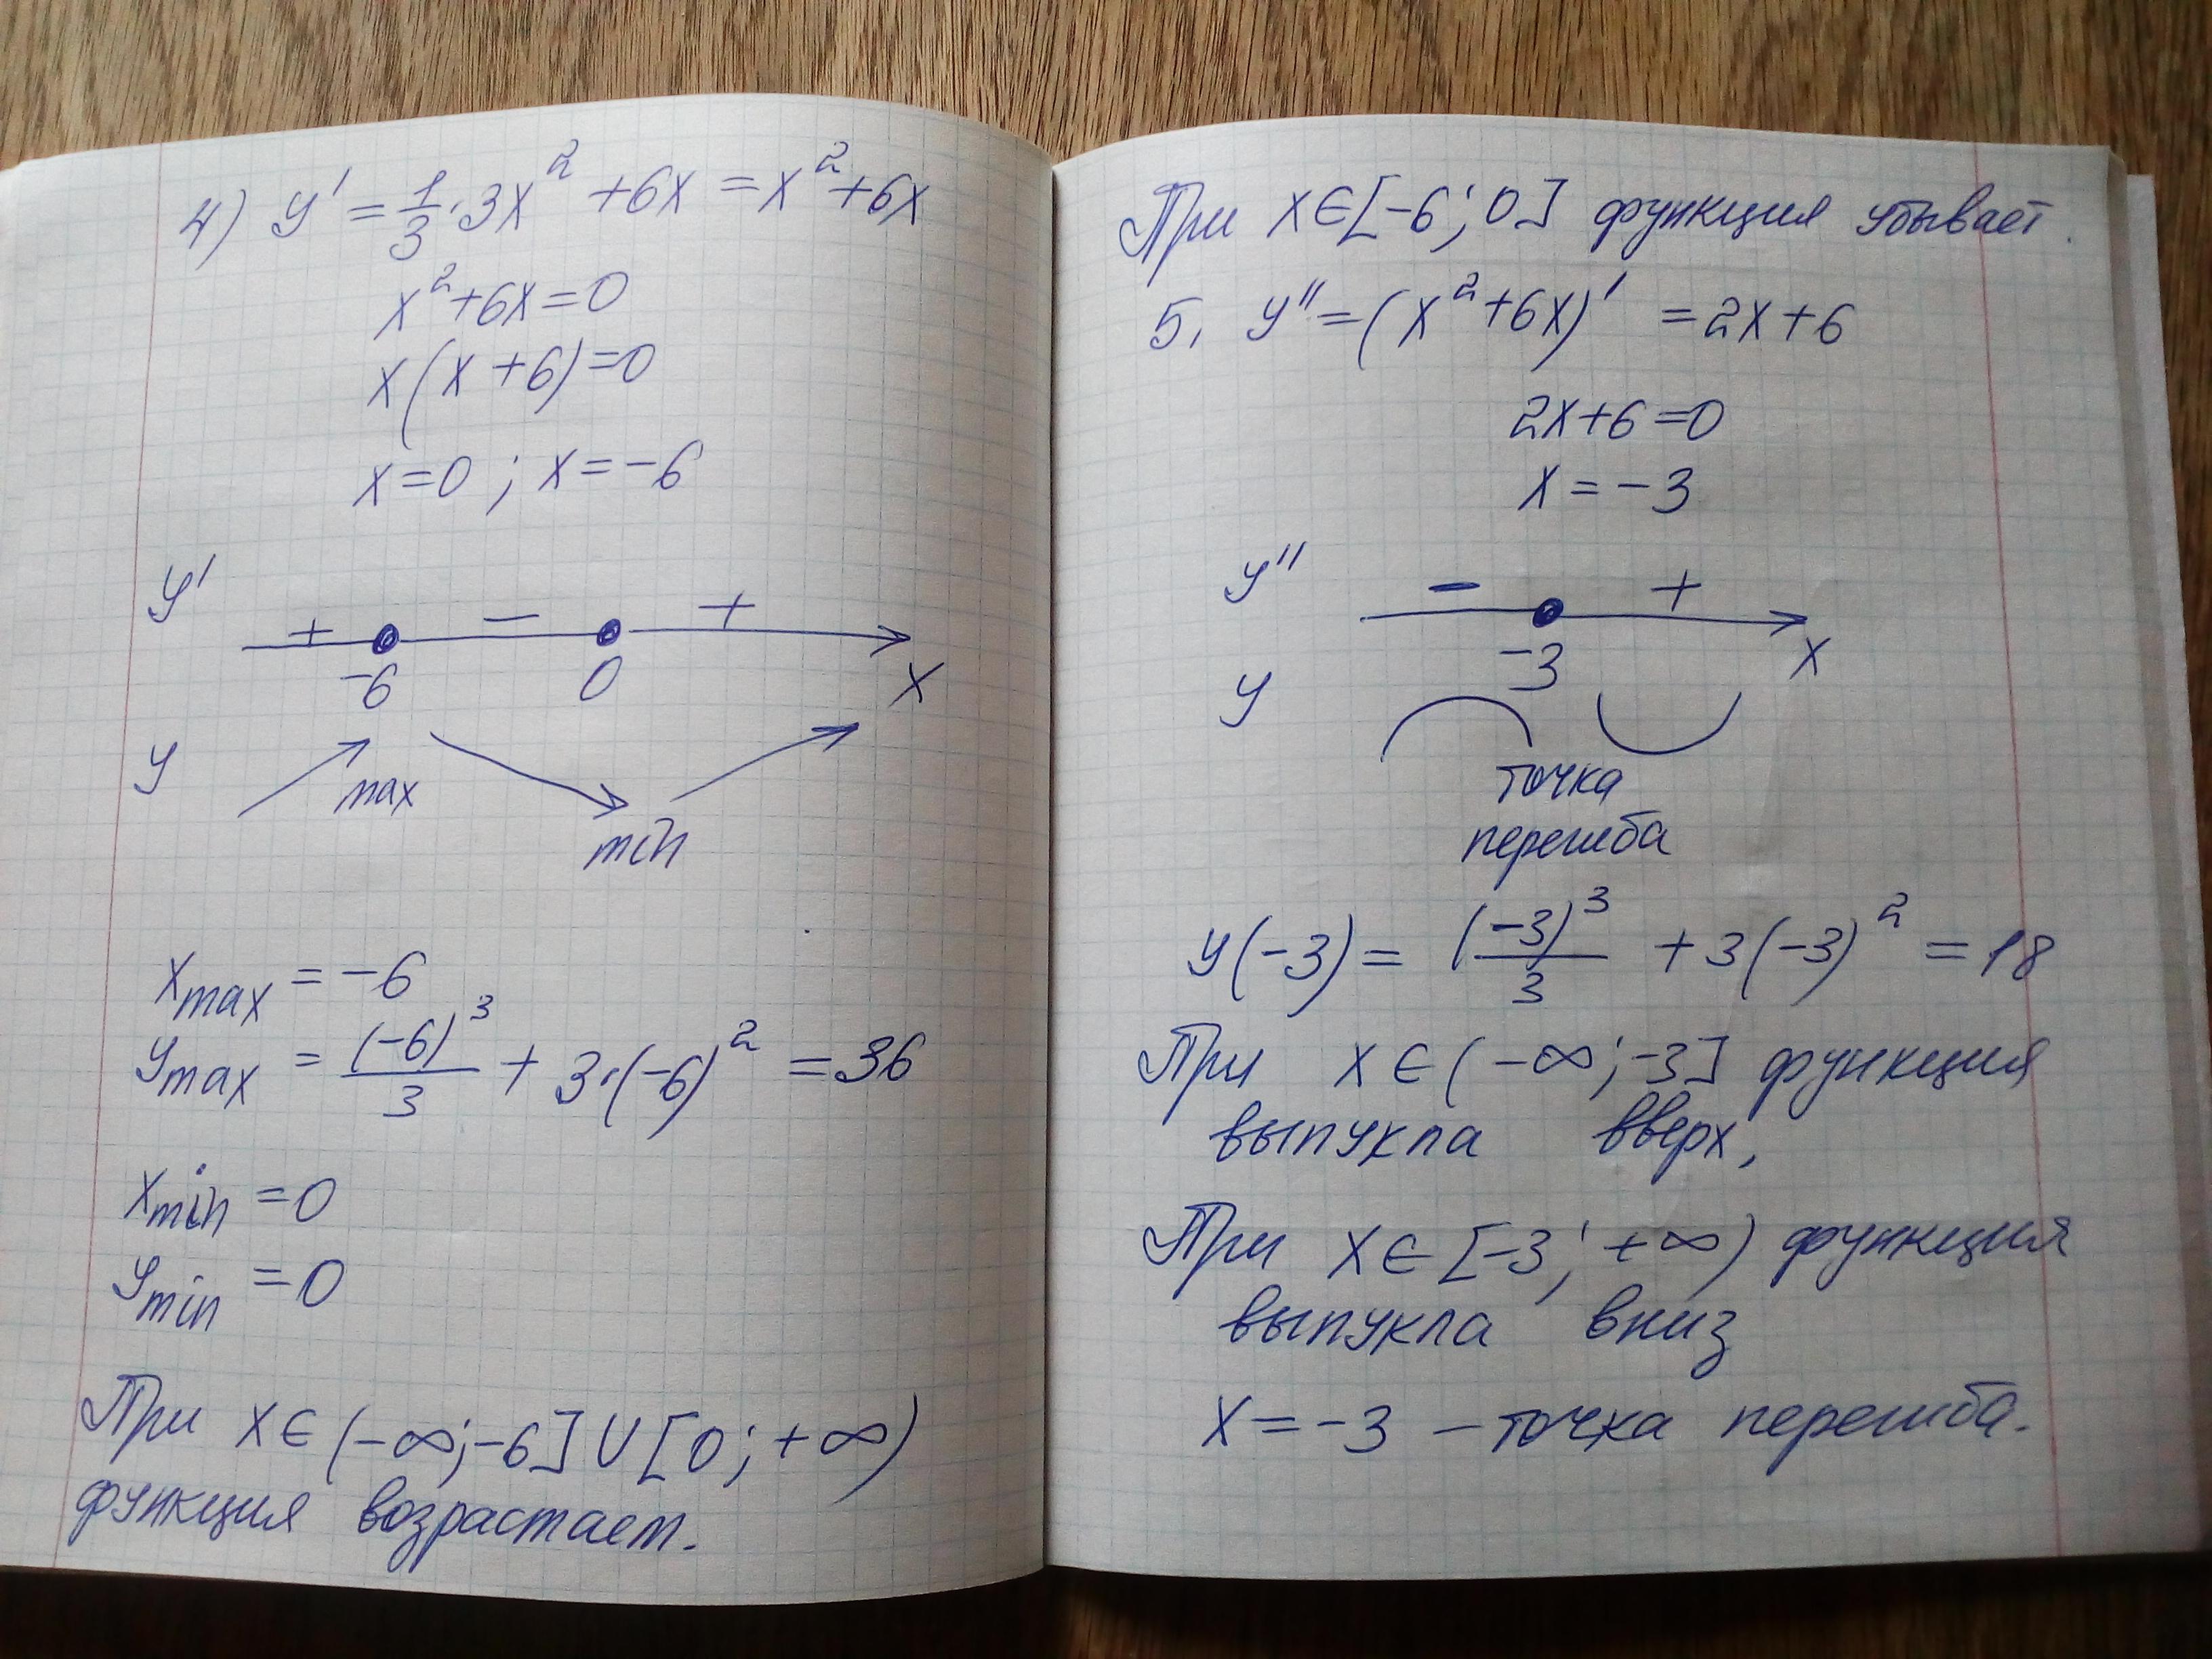 4) y' = 1/3 · 3x² + 6x = x² + 6x
x² + 6x = 0
x(x + 6) = 0
x = 0 ; x = -6
y'
+ − +
-6 0 x
y
max
min
x max = -6
y max = (-6)³/3 + 3·(-6)² = 36
x min = 0
y min = 0
При x ∈ (-∞; -6] ∪ [0; +∞)
функция возрастает.
При x ∈ [-6; 0] функция убывает.
5, y'' = (x² + 6x)' = 2x + 6
2x + 6 = 0
x = -3
y''
− +
-3 x
y
точка
перегиба
y(-3) = (-3)³/3 + 3(-3)² = 18
При x ∈ (-∞; -3] функция
выпукла вверх,
При x ∈ [-3; +∞) функция
выпукла вниз
x = -3 — точка перегиба.